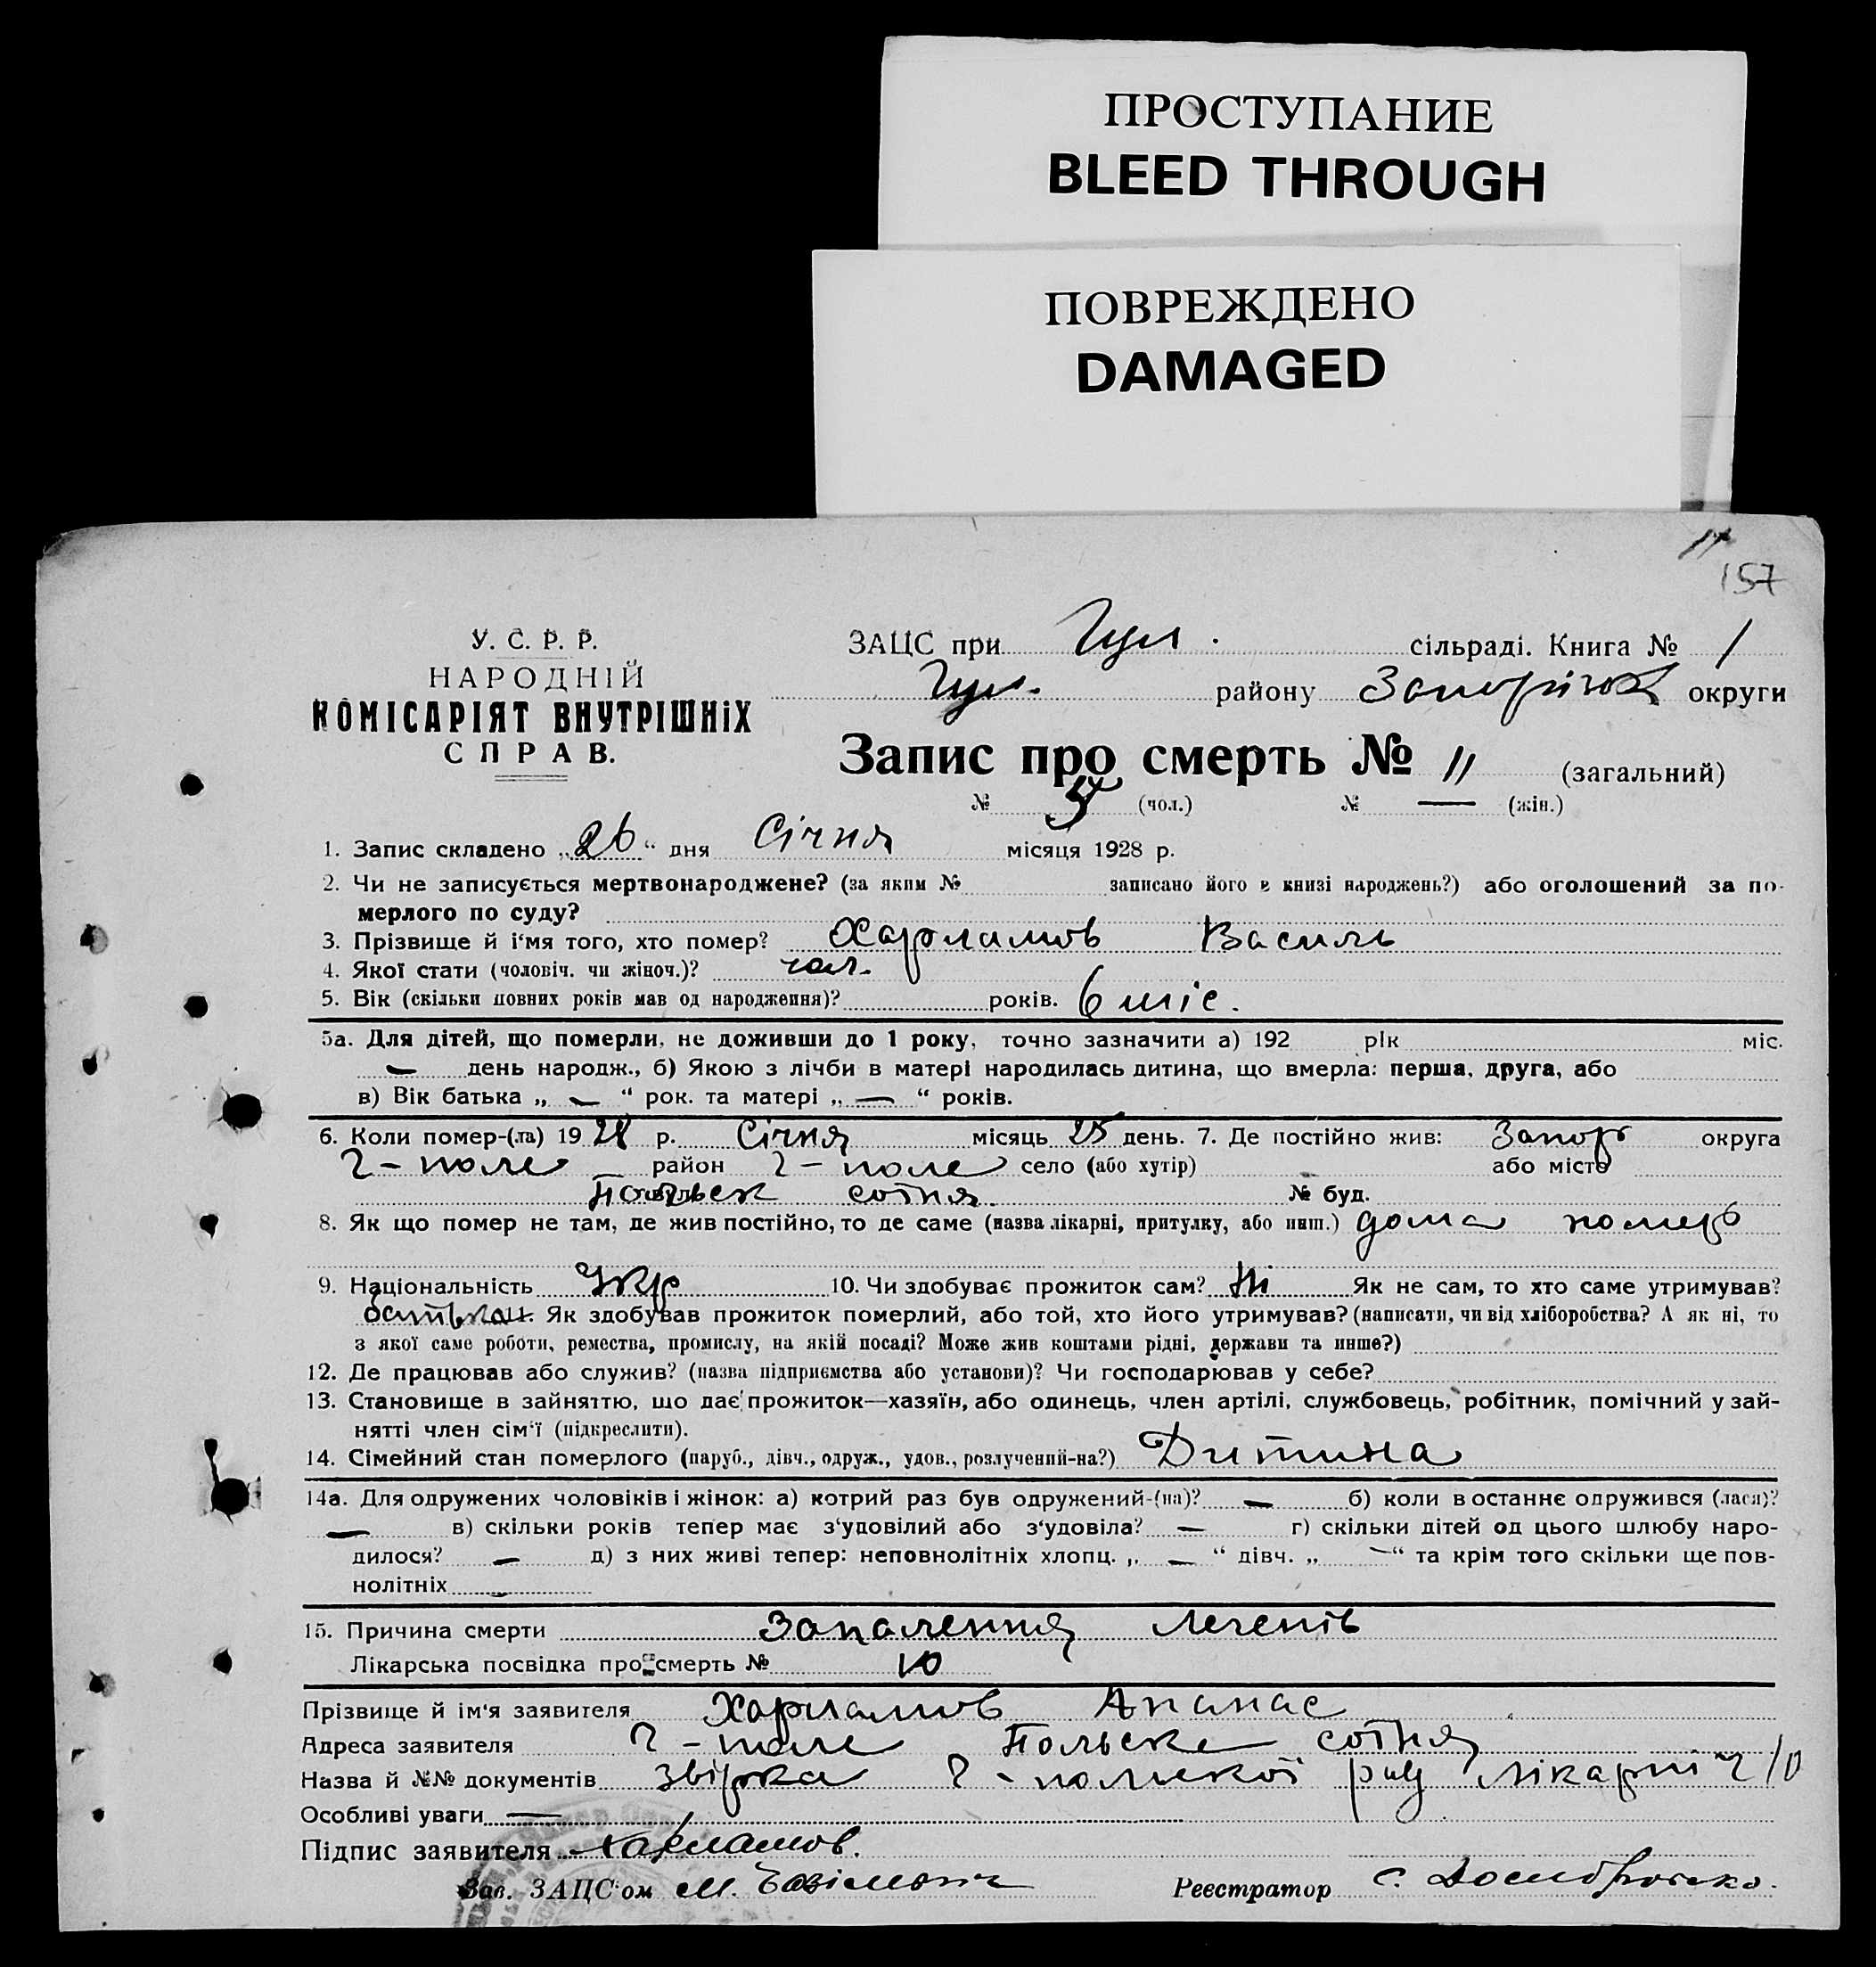 ПРОСТУПАНИЕ
BLEED THROUGH
ПОВРЕЖДЕНО
DAMAGED
157
У. С. Р. Р.
НАРОДНІЙ
КОМІСАРІЯТ ВНУТРІШНіХ
СПРАВ.
ЗАЦС при Гул. сільраді. Книга № 1
Гул. району Запоріжж округи
Запис про смерть № 11 (загальний)
№ 5 (чол.) № — (жін.)
1. Запис складено „26“ дня Січня місяця 1928 р.
2. Чи не записується мертвонароджене? (за яким № записано його в книзі народжень?) або оголошений за по-
мерлого по суду?
3. Прізвище й і‘мя того, хто помер? Харламов Василь
4. Якої стати (чоловіч. чи жіноч.)? чол.
5. Вік (скільки повних років мав од народження)? років. 6 міс.
5а. Для дітей, що померли, не доживши до 1 року, точно зазначити а) 192 рік міс.
— день народж., б) Якою з лічби в матері народилась дитина, що вмерла: перша, друга, або
в) Вік батька „ — “ рок. та матері „ — “ років.
6. Коли помер-(ла) 1928 р. Січня місяць 25 день. 7. Де постійно жив: Запор округа
Г-поле район Г-поле село (або хутір) або місто
Польск сотня. № буд.
8. Як що помер не там, де жив постійно, то де саме (назва лікарні, притулку, або инш.) дома помер
9. Національність Укр 10. Чи здобуває прожиток сам? Ні Як не сам, то хто саме утримував?
батько Як здобував прожиток померлий, або той, хто його утримував? (написати, чи від хліборобства? А як ні, то
з якої саме роботи, ремества, промислу, на якій посаді? Може жив коштами рідні, держави та инше?)
12. Де працював або служив? (назва підприємства або установи)? Чи господарював у себе?
13. Становище в зайняттю, що дає прожиток—хазяїн, або одинець, член артілі, службовець, робітник, помічний у зай-
нятті член сім‘ї (підкреслити).
14. Сімейний стан померлого (паруб., дівч., одруж., удов., розлучений-на?) Дитина
14а. Для одружених чоловіків і жінок: а) котрий раз був одружений-(на)? — б) коли в останнє одружився (лася)?
— в) скільки років тепер має з‘удовілий або з‘удовіла? — г) скільки дітей од цього шлюбу наро-
дилося? — д) з них живі тепер: неповнолітніх хлопц. „ — “ дівч. „ — “ та крім того скільки ще пов-
нолітніх —
15. Причина смерти Запалення легенів
Лікарська посвідка про смерть № 10
Прізвище й ім‘я заявителя Харламов Апанас
Адреса заявителя Г-поле Польська сотня
Назва й №№ документів звірка Г-польскої рай лікарні 10
Особливі уваги —
Підпис заявителя Харламов.
Зав. ЗАЦС‘ом М.
Реєстратор С.